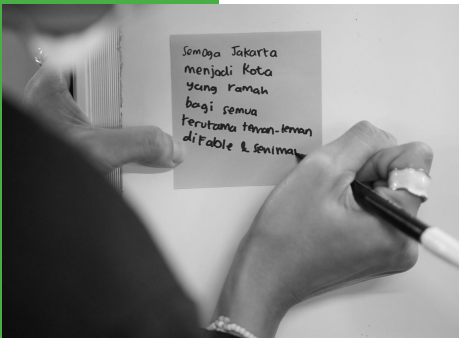 Semoga Jakarta
menjadi Kota
yang ramah
bagi semua
terutama teman-teman
difable & seniman